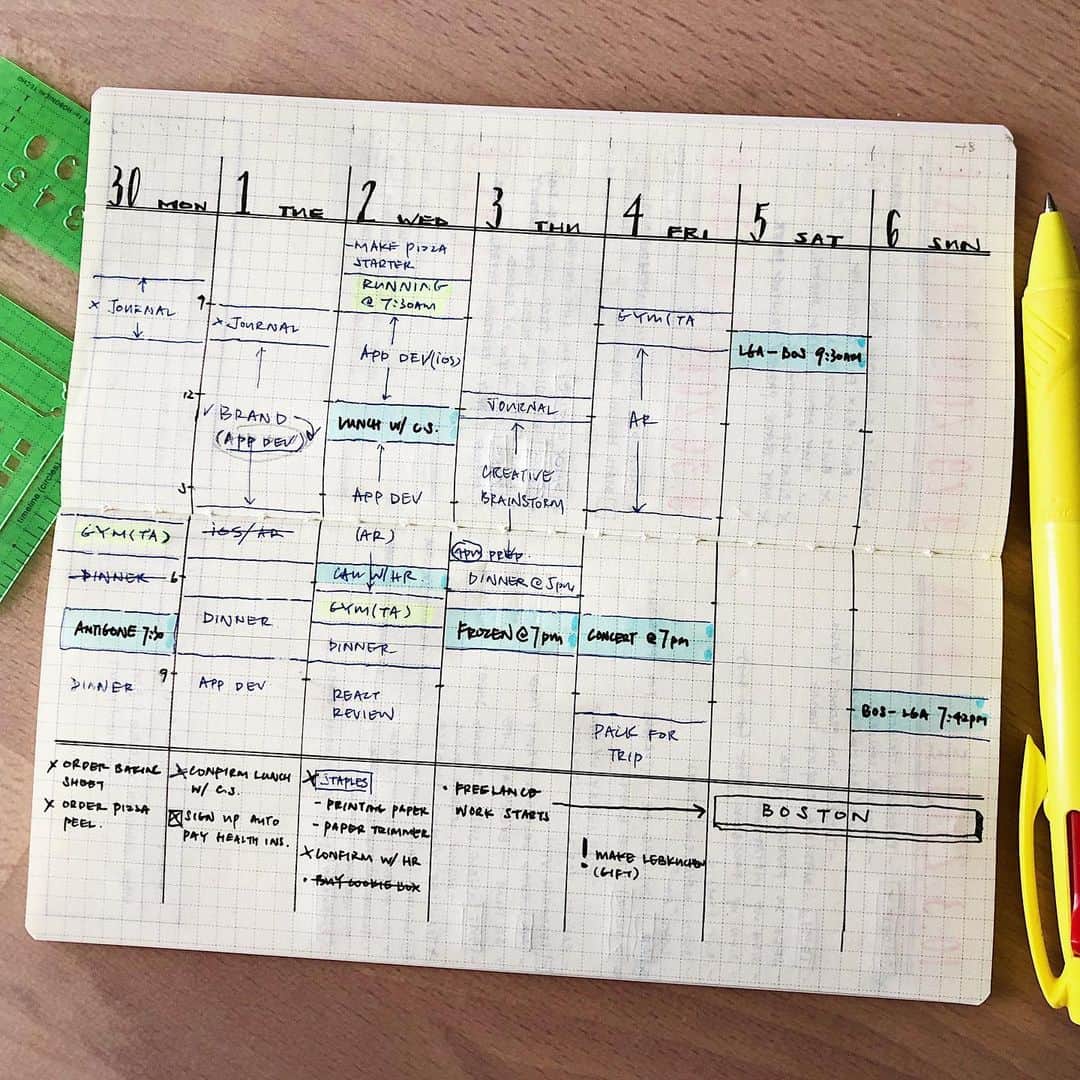 30 MON
1 TUE
2 WED
3 THU
4 FRI
5 SAT
6 SUN
× JOURNAL
GYM(TA)
DINNER
ANTIGONE 7:30
DINNER
9
12
3
6
9
× JOURNAL
✓ BRAND
(APP DEV)
iOS/AR
DINNER
APP DEV
-MAKE PIZZA
STARTER
RUNNING
@ 7:30AM
APP DEV(iOS)
LUNCH W/ C.S.
APP DEV
(AR)
CALL W/HR.
GYM(TA)
DINNER
REACT
REVIEW
JOURNAL
CREATIVE
BRAINSTORM
4pm PREP.
DINNER@5pm
FROZEN@7pm
GYM(TA
AR
CONCERT @7pm
PACK FOR
TRIP
LGA-BOS 9:30AM
BOS-LGA 7:42pm
× ORDER BAKING
SHEET
× ORDER PIZZA
PEEL.
× CONFIRM LUNCH
W/ C.S.
☒ SIGN UP AUTO
PAY HEALTH INS.
× STAPLES
- PRINTING PAPER
- PAPER TRIMMER
× CONFIRM W/ HR
• BUY COOKIE BOX
• FREELANCE
WORK STARTS
! MAKE LEBKUCHEN
(GIFT)
BOSTON
timeline (circles)